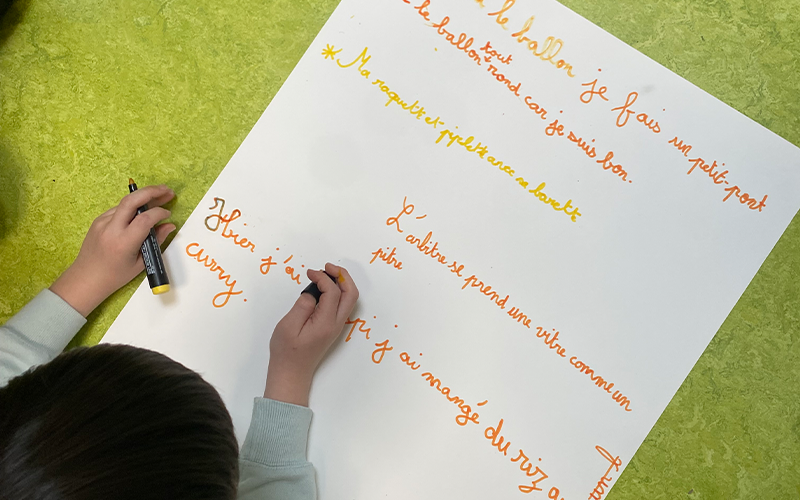 le ballon je fais un petit-pont
le ballon tout rond car je suis bon.
Ma raquette et
L'arbitre se prend une vitre comme un
pitre
Hier j'ai pi j'ai mangé du riz a
curry.